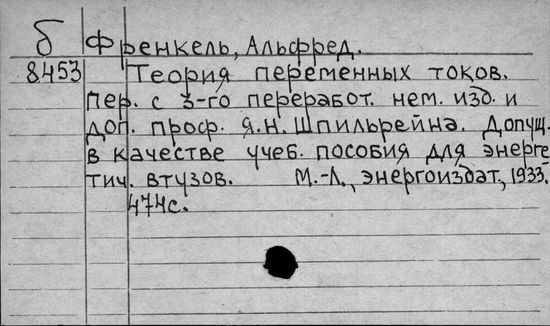 б Френкель, Альфред.
8453 Теория переменных токов.
Пер. с 3-го переработ. нем. изд. и
доп. проф. Я.Н. Шпильрейна. Допущ.
в качестве учеб. пособия для энерге
тич. втузов. М.-Л., Энергоиздат, 1933.
474с.